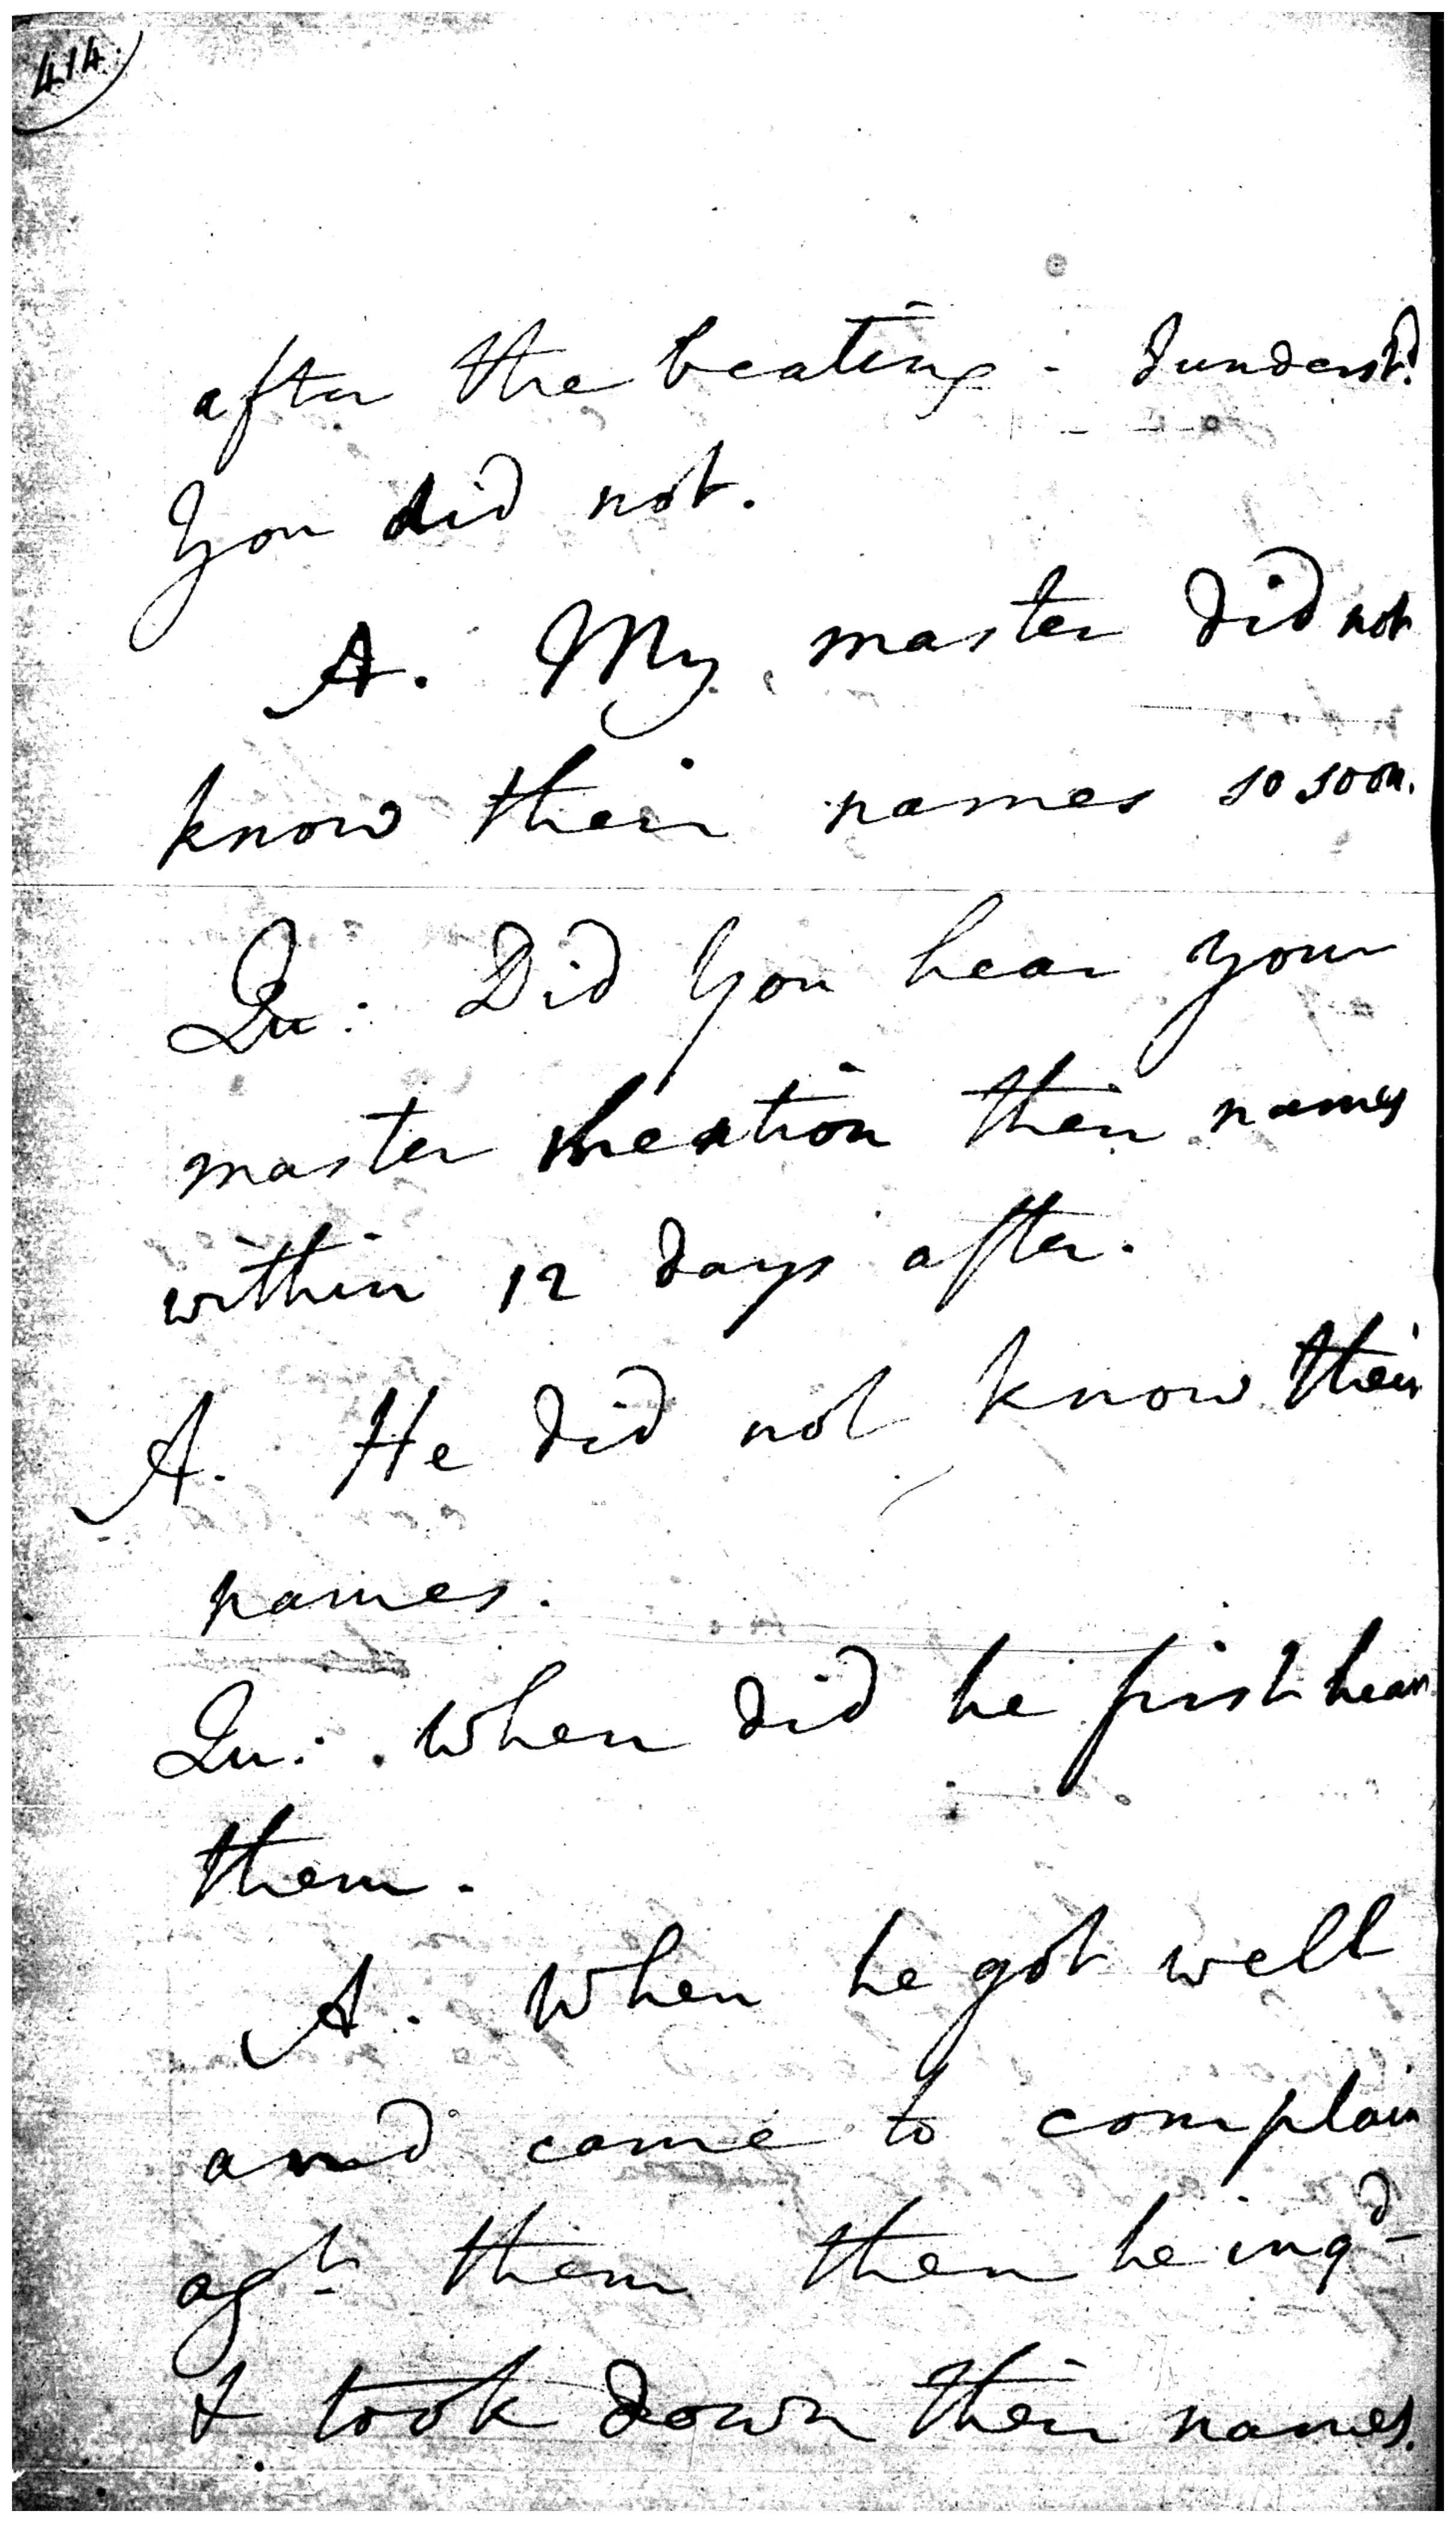 414.
after the beating - I underst.d
You did not.
A. My master did not
know their names so soon.
Qu: Did You hear your
master mention their names
within 12 days after.
A. He did not know their
names.
Qu: When did he first hear
them.
A. When he got well
and came to complain
agt. them then he inqd
& took down their names.